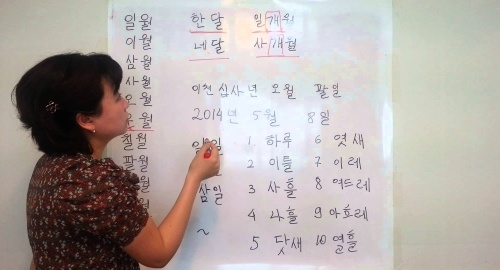 일월
이월
삼월
사월
오월
유월
칠월
팔월
한달 일개월
네달 사개월
이천 십사 년 오월 팔일
2014년 5월 8일
일일 1 하루 6 엿새
2 이틀 7 이레
삼일 3 사흘 8 여드레
4 나흘 9 아흐레
~ 5 닷새 10 열흘